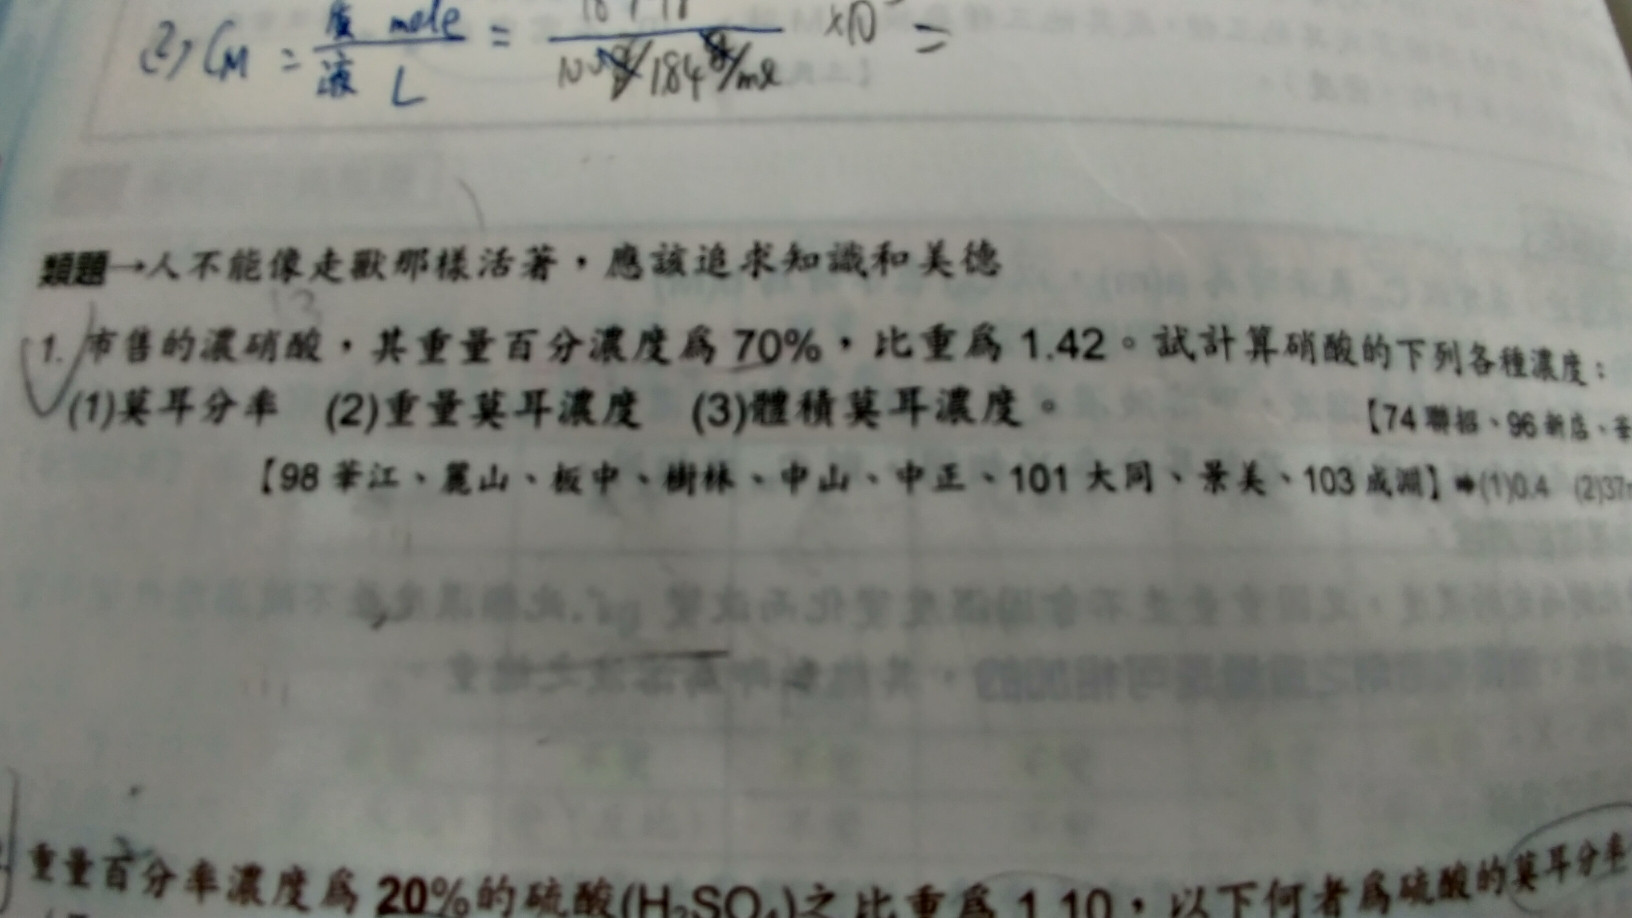 (2) CM = 質 mole / 液 L = / 105g/1.84g/ml ×10 =
類題→人不能像走獸那樣活著，應該追求知識和美德
1. 市售的濃硝酸，其重量百分濃度為 70%，比重為 1.42。試計算硝酸的下列各種濃度：
(1)莫耳分率 (2)重量莫耳濃度 (3)體積莫耳濃度。 【74 聯招、96 新店、
【98 華江、麗山、板中、樹林、中山、中正、101 大同、景美、103 成淵】➡(1)0.4 (2)37
重量百分率濃度為 20%的硫酸(H₂SO₄)之比重為 1.10，以下何者為硫酸的莫耳分率